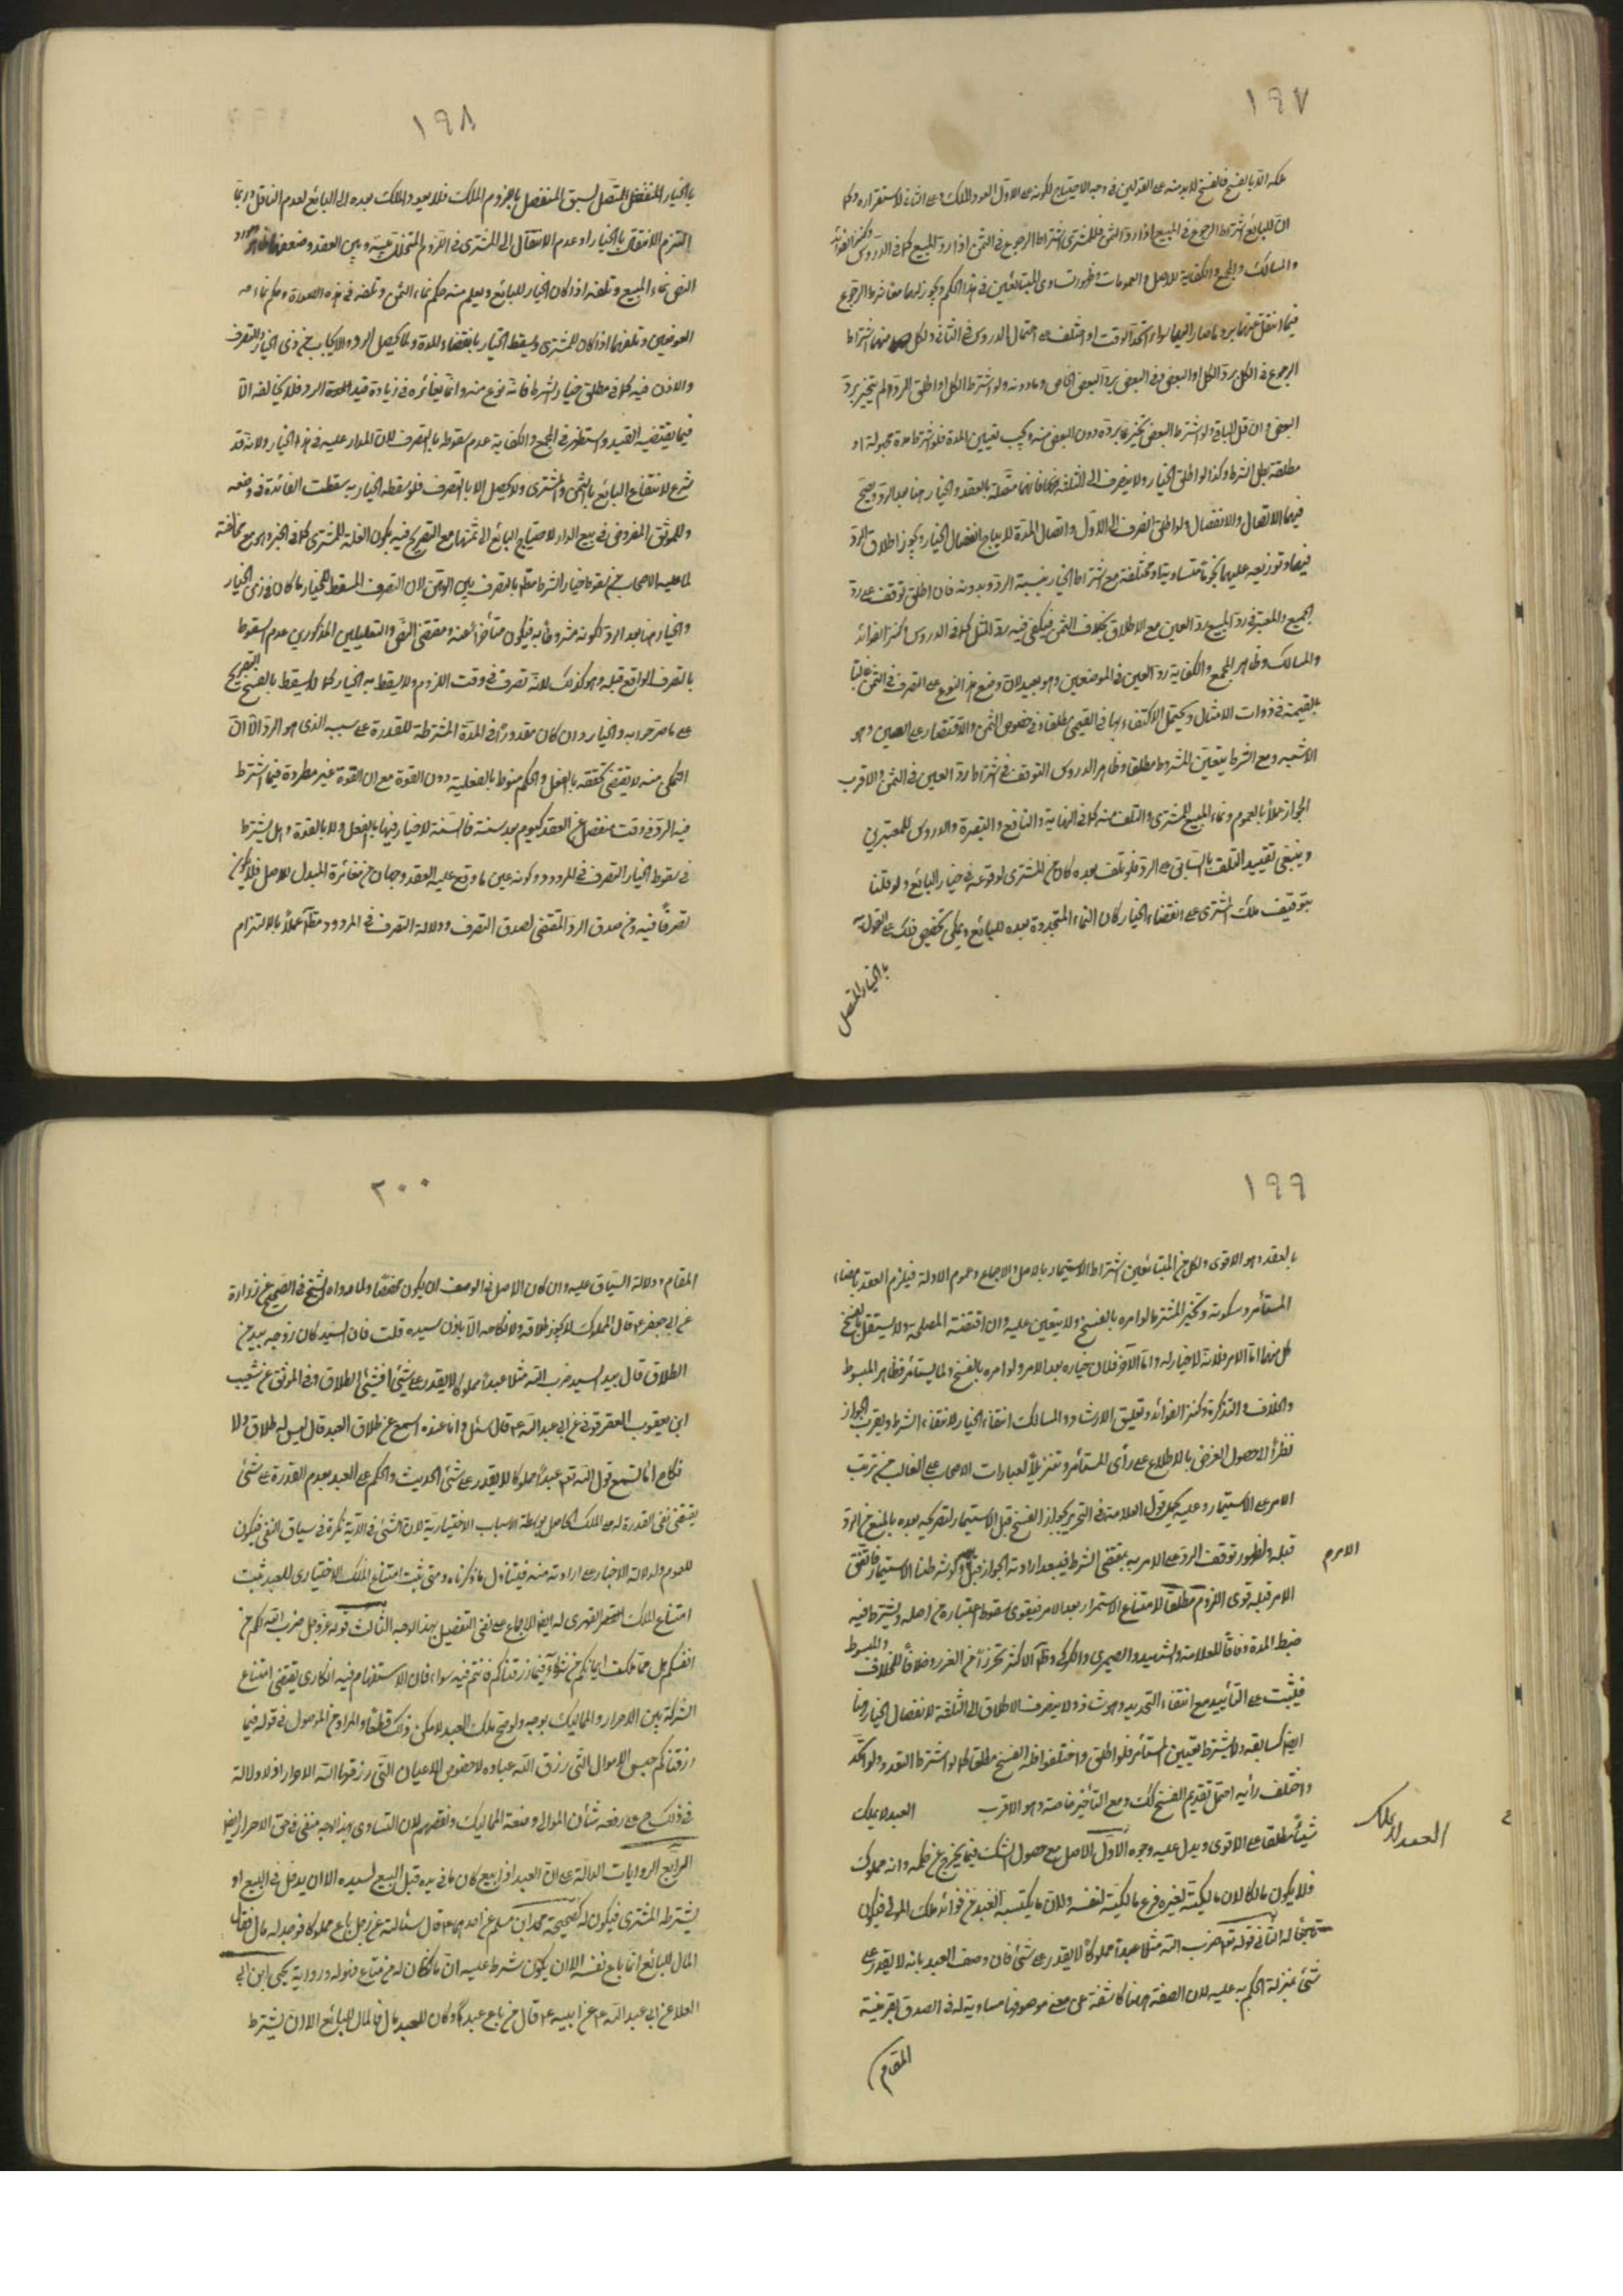 ١٩٧
ان للبائع اشتراط الرجوع في المبيع اذا رد الثمن فللمشتري اشتراط الرجوع في الثمن اذا رد المبيع كما في الدروس وكنز الفوائد
والمسالك والمجمع والكفاية للاصل والعمومات وظهور تساوي المتبائعين في هذا الحكم ويجوز لهما معا شرط الرجوع
فيما انتقل عنهما برد ما صار اليهما سواء اتحد الوقت او اختلف على احتمال الدروس في الثاني ولكل منهما اشتراط
الرجوع في الكل برد الكل او البعض وفي البعض برد البعض الخاص وما دونه ولو اشترط الكل او اطلق الرد لم يتخير برد
البعض وان قل الباقي ولو اشترط البعض تخير بما برده دون البعض منه ويجب تعيين المدة فلو اشترط مدة مجهولة او
مطلقة بطل الشرط وكذا لو اطلق الخيار ولا ينصرف الى الثلثة فانها متصلة بالعقد والخيار هنا بعد الرد ويصح
فيهما الاتصال والانفصال ولو اطلق انصرف الى الاول واتصال المدة لا ينافي انفصال الخيار ويجوز اطلاق الرد
فيها وتوزيعه عليها نجوما متساوية او مختلفة مع اشتراط الخيار بنسبة الرد وبدونه فان اطلق توقف على رد
الجميع والمعتبر في رد المبيع رد العين مع الاطلاق بخلاف الثمن فيكفي فيه رد المثل كما في الدروس وكنز الفوائد
والمسالك وظاهر المجمع والكفاية رد العين في الموضعين وهو بعيد لان وضع هذا النوع على التصرف في الثمن غالبا
بالقيمة في ذوات الامثال ويحتمل الاكتفاء بها في القيمي مطلقا وفي خصوص الثمن والاقتصار على العين وهو
الاشبه ومع الشرط يتعين المشروط مطلقا وظاهر الدروس التوقف في اشتراط رد العين في الثمن والاقرب
الجواز عملا بالعموم ونماء المبيع للمشتري والتلف منه كما في النهاية والنافع والتبصرة والدروس للمعتبرين
وينبغي تقييد التلف بالسابق على الرد فلو تلف بعده كان من المشتري لوقوعه في خيار البائع ولو قلنا
بتوقيف ملك المشتري على انقضاء الخيار كان النماء المتجددة بعده للبائع ويمكن تخصيص ذلك على القول به
بالخيار المتصل
١٩٨
بالخيار المتصل لسبق المنفصل بالجزوم الملك فلا يعود الملك بعده الى البائع لعدم الناقل وربما
التزم الانتقال بالخيار او عدم الانتقال الى المشتري في اللزوم المتخلل بينه وبين العقد وضعفهما
النص نماء المبيع وتلفه اذا كان الخيار للبائع ويعلم منه حكم نماء الثمن وتلفه في هذه الصورة وحكم نماء
العوضين وتلفهما اذا كان للمشتري ويسقط الخيار بانقضاء المدة ولما يحصل الرد والايجاب من ذي الخيار والتصرف
والاذن فيه كما في مطلق خيار الشرط فانه نوع منه وانما يغايره في زيادة قيد الرد فلا يخالفه الا
فيما يقتضيه القيد واستظهر في المجمع والكفاية عدم سقوطه بالتصرف لان المدار عليه في هذا الخيار ولانه قد
شرع لانتفاع البائع بالثمن والمشتري ولا يحصل الا بالتصرف فلو سقط الخيار به سقطت الفائدة في وضعه
وللموثق المفروض في بيع الدار لاحتياج البائع الى ثمنها مع التصريح فيه بكون الغلة للمشتري كما في الخبر وهو مع مخالفته
لما عليه الاصحاب من سقوط خيار الشرط مطلقا بالتصرف بين الوهن لان التصرف المسقط للخيار ما كان في زمن الخيار
والخيار هنا بعد الرد لكونه مشروطا به فيكون متأخرا عنه ومقتضى النص والتعليلين المذكورين عدم السقوط
بالتصرف الواقع قبله وهو كذلك لانه تصرف في وقت اللزوم ولا يسقط به الخيار كما لا يسقط بالفسخ التصريح
على ما صرحوا به والخيار وان كان مقدورا في المدة المشترطة للقدرة على سببه الذي هو الرد الا ان
التمكن منه لا يقتضي تحققه بالفعل والحكم منوط بالفعلية دون القوة مع ان القوة غير مطردة فيما اشترط
فيه الرد في وقت منفصل عن العقد كيوم بعد سنة فالسنة لا خيار فيها بالفعل ولا بالقوة وهل يشترط
في سقوط الخيار التصرف في المردود وكونه عين ما وقع عليه العقد وجهان من مغائرة المبدل للاصل فلا يكون
تصرفا فيه ومن صدق الرد المقتضي لصدق التصرف ودلالة التصرف في المردود مطلقا عملا بالالتزام
١٩٩
بالعقد وهو الاقوى ولكل من المتبائعين اشتراط الاستيمار بالاصل والاجماع وعموم الادلة فيلزم العقد بامضاء
المستأمر وسكوته ويتخير المشترط لو امره بالفسخ ولا يتعين عليه وان اقتضته المصلحة ولا يستقل بالفسخ
كل منهما اما الامر فلانه لا خيار له واما الآخر فلان خياره بعد الامر ولو امره بالفسخ ولما يستأمر فظاهر المبسوط
والخلاف والتذكرة وكنز الفوائد وتعليق الارشاد والمسالك انتفاء الخيار لانتفاء الشرط ويقرب الجواز
نظرا الى حصول الغرض بالاطلاع على رأي المستأمر وتنزيلا لعبارات الاصحاب على الغالب من ترتب
الامر على الاستيمار وعليه يحمل قول العلامة في التحرير بجواز الفسخ قبل الاستيمار لتصريحه بعده بالمنع من الرد
قبله ولظهور توقف الرد على الامر به بمقتضى الشرط فيبعد ارادته الجواز قبله ولو شرطنا الاستيمار فاتفق
الامر قبله قوى اللزوم مطلقا لامتناع الاستمرار بعد الامر فيقوى سقوط اعتباره من اصله ويشترط فيه
ضبط المدة وفاقا للعلامة والشهيد والصيمري والكركي وظاهر الاكثر تحرزا من الغرر وخلافا للخلاف والمبسوط
فيثبت على التأبيد مع انتفاء التحديد وهو شاذ ولا ينصرف الاطلاق الى الثلثة لانفصال الخيار هنا
ايضا كسابقه ولا يشترط تعيين المستأمر فلو اطلق واختلفوا فله الفسخ مطلقا كما لو اشترط التعدد ولو اتحد
واختلف رأيه احتمل تقديم الفسخ كذلك ومع التأخير خاصة وهو الاقرب العبد لا يملك
شيئا مطلقا على الاقوى ويدل عليه وجوه الاول الاصل مع حصول الشك فيما يخرج عن حكمه وانه مملوك
فلا يكون مالكا لان مالكيته لغيره فرع مالكيته لنفسه ولان ما يكتسبه العبد من فوائد ملك المولى فيكون
تابعا له الثاني قوله تع ضرب الله مثلا عبدا مملوكا لا يقدر على شئ فان وصف العبد بانه لا يقدر على
شئ بمنزلة الحكم به عليه لان الصفة هنا كاشفة عن معنى موصوفها مساوية له في الصدق بقرينة
المقام
العبد لا يملك
٢٠٠
المقام ودلالة السياق عليه وان كان الاصل في الوصف ان يكون مخصصا ولما رواه الشيخ في الصحيح عن زرارة
عن ابي جعفر ع قال المملوك لا يجوز طلاقه ولا نكاحه الا باذن سيده قلت فان السيد كان زوجه بيد من
الطلاق قال بيد السيد ضرب الله مثلا عبدا مملوكا لا يقدر على شئ أفشئ الطلاق وفي الموثق عن شعيب
ابن يعقوب العقرقوفي عن ابي عبد الله ع قال سئل وانا عنده اسمع عن طلاق العبد قال ليس له طلاق ولا
نكاح اما تسمع قول الله تع عبدا مملوكا لا يقدر على شئ الحديث والحكم على العبد بعدم القدرة على شئ
يقتضي نفي القدرة له على الملك الحاصل بواسطة الاسباب الاختيارية لان الشئ في الآية نكرة في سياق النفي فيكون
للعموم ولدلالة الاخبار على ارادته منه فيتناول ما ذكرناه ومتى ثبت امتناع الملك الاختياري للعبد ثبت
امتناع الملك القهري له ايضا للاجماع على نفي التفصيل بهذا الوجه الثالث قوله عز وجل ضرب لكم مثلا من
انفسكم هل مما ملكت ايمانكم من شركاء فيما رزقناكم فانتم فيه سواء فان الاستفهام فيه انكاري يقتضي امتناع
الشركة بين الاحرار والمماليك بوجه ولو صح ملك العبد لامكن ذلك قطعا والمراد من الموصول في قوله فيما
رزقناكم جنس الاموال التي رزق الله عباده لا خصوص الاعيان التي رزقها الله الاحرار اذ لا دلالة
في ذلك ح على رفعة شأن الموالي وضعة المماليك ونقصهم لان التساوي بهذا الوجه منفي في حق الاحرار ايضا
الرابع الروايات الدالة على ان العبد اذا بيع كان ما في يده قبل البيع لسيده الا ان يدخل في البيع او
يشترطه المشتري فيكون له كصحيحة محمد بن مسلم عن احدهما ع قال سئالته عن رجل باع مملوكا فوجد له مال فقال
المال للبائع انما باع نفسه الا ان يكون شرط عليه ان ما كان له من متاع فهو له ورواية يحيى ابن ابي
العلا عن ابي عبد الله ع عن ابيه ع قال من باع عبدا وكان للعبد مال فالمال للبائع الا ان يشترط